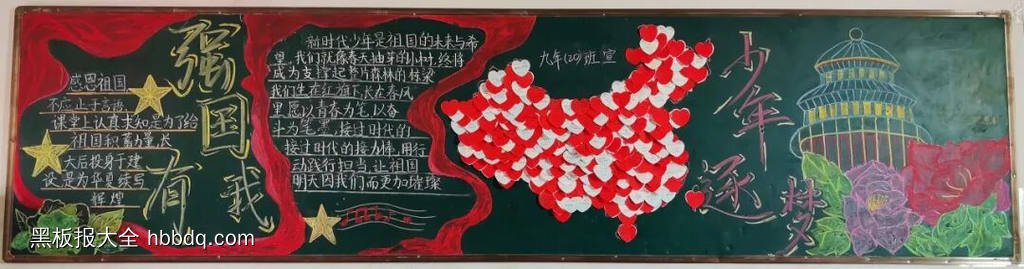 强国有我
感恩祖国
不应止于言语
课堂上认真求知是为了给
祖国积蓄力量,长
大后投身于建
设是为华夏续写
辉煌
新时代少年是祖国的未来与希
望,我们就像春天抽芽的小树,终将
成为支撑起半片森林的栋梁
我们生在红旗下,长在春风
里愿以青春为笔,以奋
斗为笔墨,接过时代的
接过时代的接力棒,用行
动践行担当,让祖国
明天因我们而更加璀璨
九年(20)班宣
少年逐梦
黑板报大全 hbbdq.com